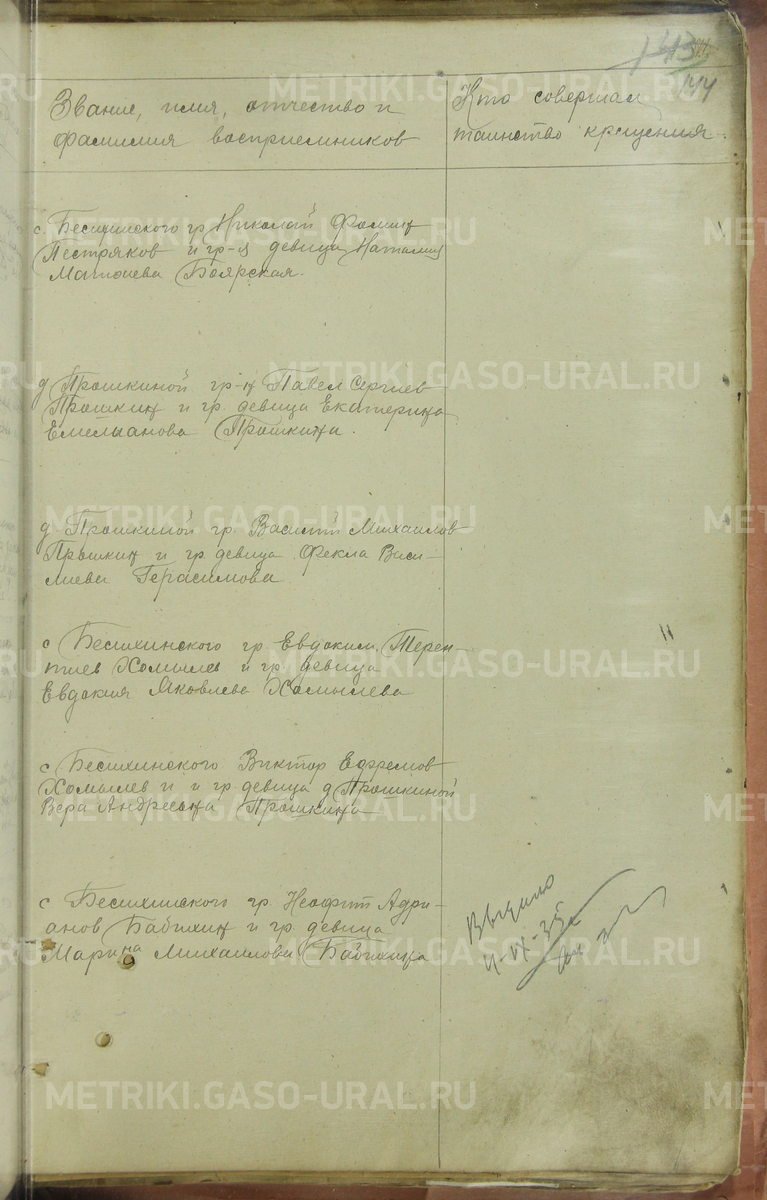 143
144
Звание, имя, отчество и
фамилия восприемников
Кто совершал
таинство крещения.
с. Бесихинского гр Николай Фомин
Пестряков и гр-я девица Наталия
Боярская.
д Прошкиной гр-н Павел Сергиев
Прошкин и гр. девица Екатерина
Емельянова Прошкина.
д Прошкиной гр. Василий Михаилов
Прошкин и гр девица Фекла Васи-
лиева Герасимова
с Бесихинского гр Евдоким Терен-
тиев Хомылев и гр девица
Евдокия Яковлева Хомылева
с. Бесихинского Виктор Ефремов
Хомылев и и гр девица д Прошкиной
Вера Андреевна Прошкина
с Бесихинского гр. Неофит Адри-
анов Бабихин и гр девица
Марина Михаилова Бабихина
4-IX-35
METRIKI.GASO-URAL.RU